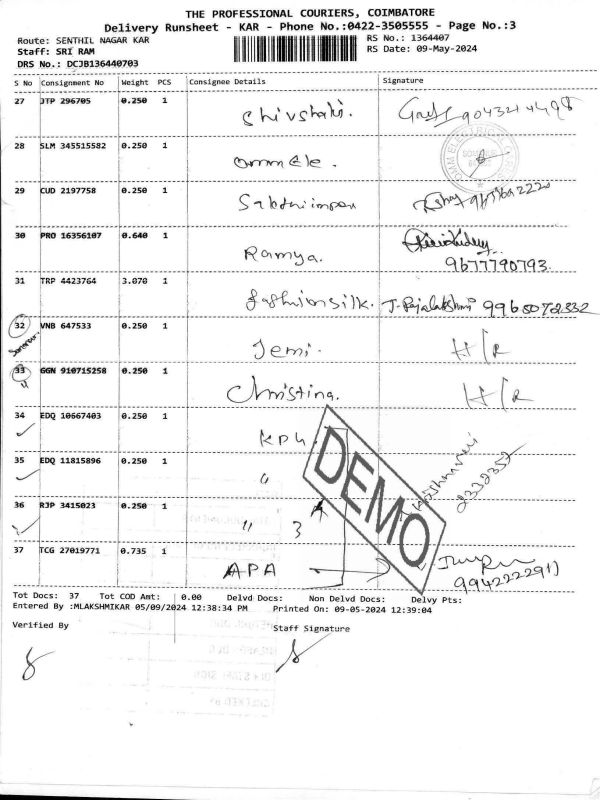 THE PROFESSIONAL COURIERS, COIMBATORE
Delivery Runsheet - KAR - Phone No.:0422-3505555 - Page No.:3
Route: SENTHIL NAGAR KAR RS No.: 1364407
Staff: SRI RAM RS Date: 09-May-2024
DRS No.: DCJB136440703
S No Consignment No Weight PCS Consignee Details Signature
27 JTP 296705 0.250 1 Shivshakti.
28 SLM 345515582 0.250 1
29 CUD 2197758 0.250 1
30 PRO 16356107 0.640 1 Ramya.
9677790793.
31 TRP 4423764 3.070 1 fashionsilk. J. Rajalakshmi
32 VNB 647533 0.250 1 Jemi. H/R
33 GGN 910715258 0.250 1 Christina. H/R
34 EDQ 10667403 0.250 1 KPH.
35 EDQ 11815896 0.250 1 "
36 RJP 3415023 0.250 1 " 3
37 TCG 27019771 0.735 1 APA
DEMO
Tot Docs: 37 Tot COD Amt: 0.00 Delvd Docs: Non Delvd Docs: Delvy Pts:
Entered By :MLAKSHMIKAR 05/09/2024 12:38:34 PM Printed On: 09-05-2024 12:39:04
Verified By Staff Signature